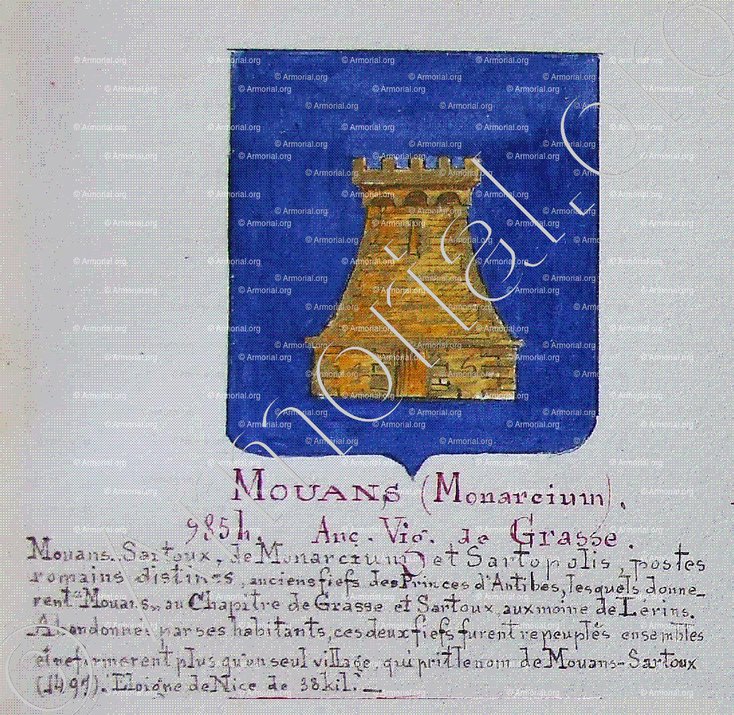 MOUANS (Monarcium).
985 h. Anc. Vig. de Grasse.
Mouans-Sartoux, de Monarcium et Sartopolis, postes
romains distincs, anciens fiefs des Princes d'Antibes, lesquels donne-
rent "Mouans" au Chapitre de Grasse et Sartoux, aux moine de Lérins.
Abandonnés par ses habitants, ces deux fiefs furent repeuplés ensembles
et ne formerent plus qu'un seul village, qui prit le nom de Mouans-Sartoux
(1497). Eloigne de Nice de 38 kil.
© Armorial.org
Armorial.org